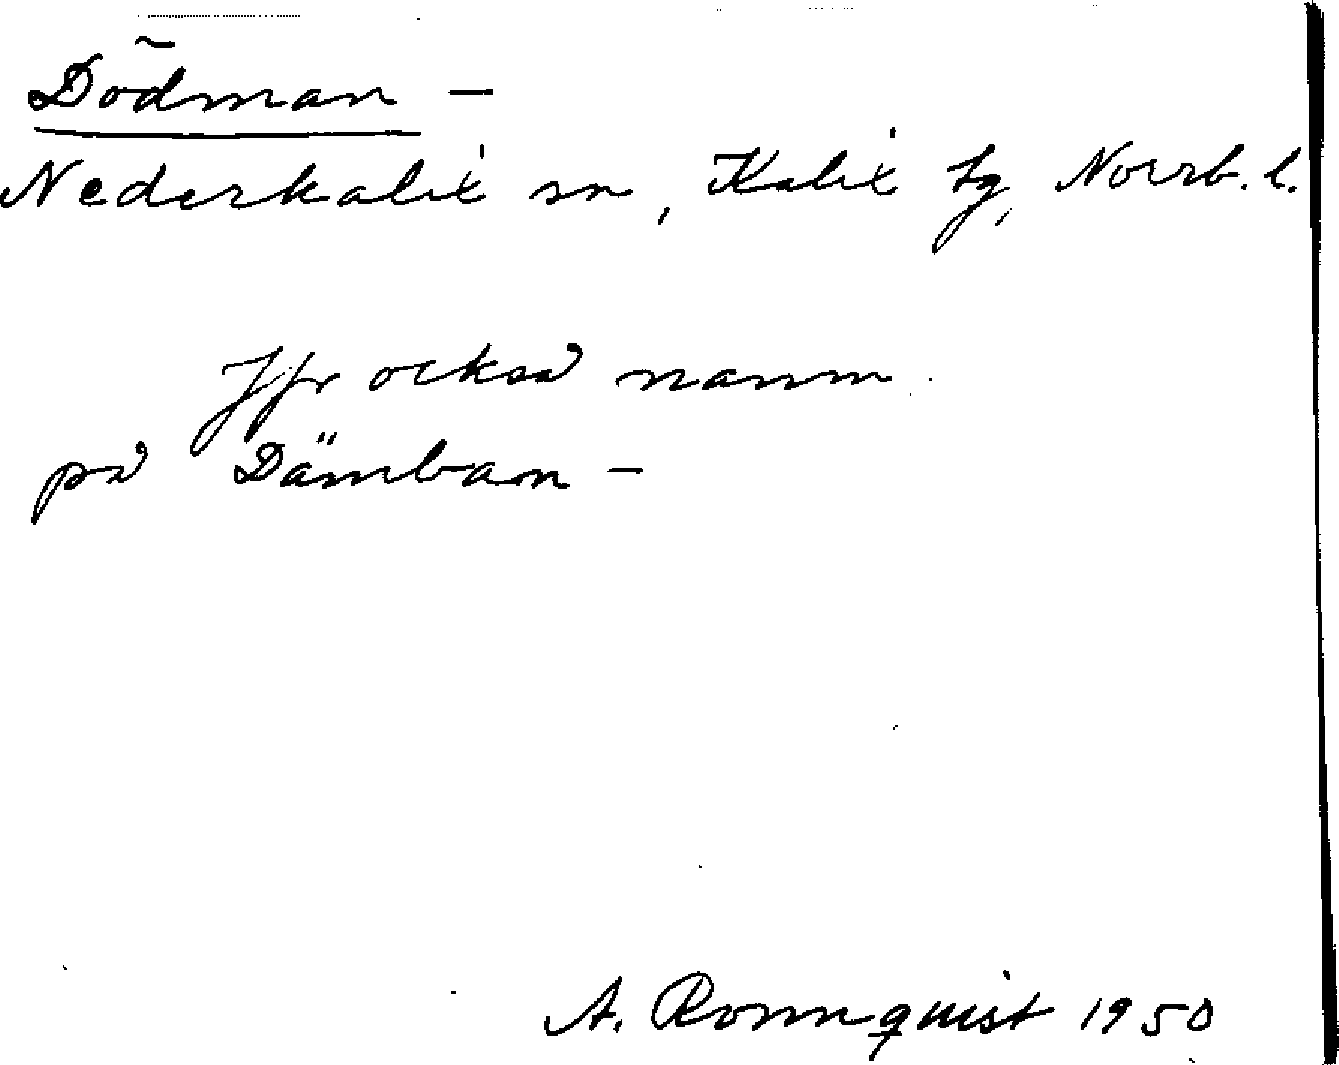 Dödman -
Nederkalix sn, Kalix tg, Norrb. l.
Jfr också namn
på Dämban -
A. Rönnquist 1950